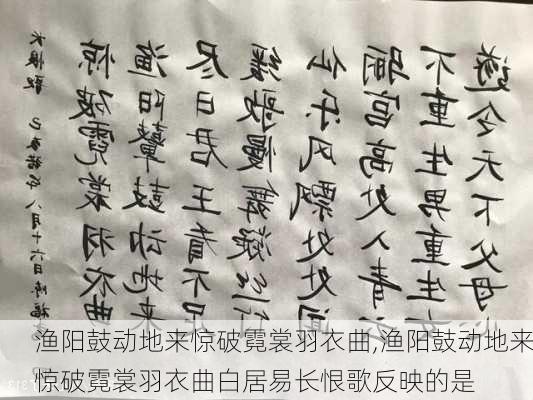 遂令天下父母
不重生男重生
骊宫高处入青云
仙乐风飘处处闻
缓歌慢舞凝丝竹
尽日君王看不足
渔阳鼙鼓动地来
惊破霓裳羽衣曲
长恨歌 己亥猪年八月十六日
渔阳鼓动地来惊破霓裳羽衣曲,渔阳鼓动地来
惊破霓裳羽衣曲白居易长恨歌反映的是